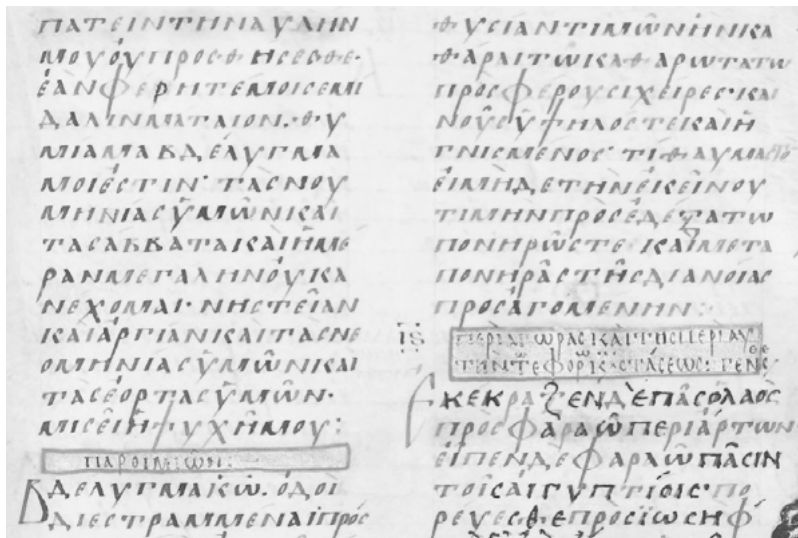 ΠΑΤΕΙΝΤΗΝΑΥΛΗΝ
ΜΟΥΟΥΠΡΟΣΘΗСΕСΘΕ·
ΕΑΝΦΕΡΗΤΕΜΟΙСΕΜΙ
ΔΑΛΙΝΜΑΤΑΙΟΝ·ΘΥ
ΜΙΑΜΑΒΔΕΛΥΓΜΑ
ΜΟΙΕСΤΙΝ·ΤΑСΝΟΥ
ΜΗΝΙΑСΥΜΩΝΚΑΙ
ΤΑСΑΒΒΑΤΑΚΑΙΗΜΕ
ΡΑΝΜΕΓΑΛΗΝΟΥΚΑ
ΝΕΧΟΜΑΙ·ΝΗСΤΕΙΑΝ
ΚΑΙΑΡΓΙΑΝΚΑΙΤΑСΝΕ
ΟΜΗΝΙΑСΥΜΩΝΚΑΙ
ΤΑСΕΟΡΤΑСΥΜΩΝ·
ΜΙСΕΙΗΨΥΧΗΜΟΥ:
ΠΑΡΟΙΜΙΩΝ:
ΒΔΕΛΥΓΜΑΚΩ·ΟΔΟΙ
ΔΙΕСΤΡΑΜΜΕΝΑΙΠΡΟС
ΘΥСΙΑΝΤΙΜΩΝΗΝΚΑ
ΘΑΡΑΙΤΩΚΑΘΑΡΩΤΑΤΩ
ΠΡΟСΦΕΡΟΥСΙΧΕΙΡΕС·ΚΑΙ
ΝΟΥСΥΨΗΛΟСΤΕΚΑΙΗ
ΓΝΙСΜΕΝΟС·ΤΙΘΑΥΜΑСΤΟ
ΕΙΜΗΔΕΤΗΝΕΚΕΙΝΟΥ
ΤΙΜΗΝΠΡΟСΕΔΕΞΑΤΩ
ΠΟΝΗΡΩСΤΕ·ΚΑΙΜΕΤΑ
ΠΟΝΗΡΑСΤΗСΔΙΑΝΟΙΑС
ΠΡΟСΑΓΟΜΕΝΗΝ:
ΕΚΕΚΡΑΞΕΝΔΕΠΑСΟΛΑΟС
ΠΡΟСΦΑΡΑΩΠΕΡΙΑΡΤΩΝ
ΕΙΠΕΝΔΕΦΑΡΑΩΠΑСΙΝ
ΤΟΙСΑΙΓΥΠΤΙΟΙС·ΠΟ
ΡΕΥΕСΘΕΠΡΟСΙΩСΗΦ